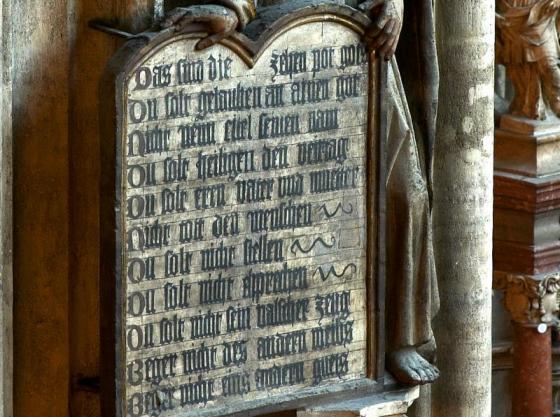 Das sind die zehen pot
Du solt gelauben an ainen got
Nicht nenn eitel seinen nam
Du solt heiligen den veirtag
Du solt eern vater und mueter
Nicht tot den menschen
Du solt nicht stellen
Du solt nicht eprechen
Du solt nicht sein valscher zeug
Beger nicht des andern weibs
Beger nicht eins andern guets